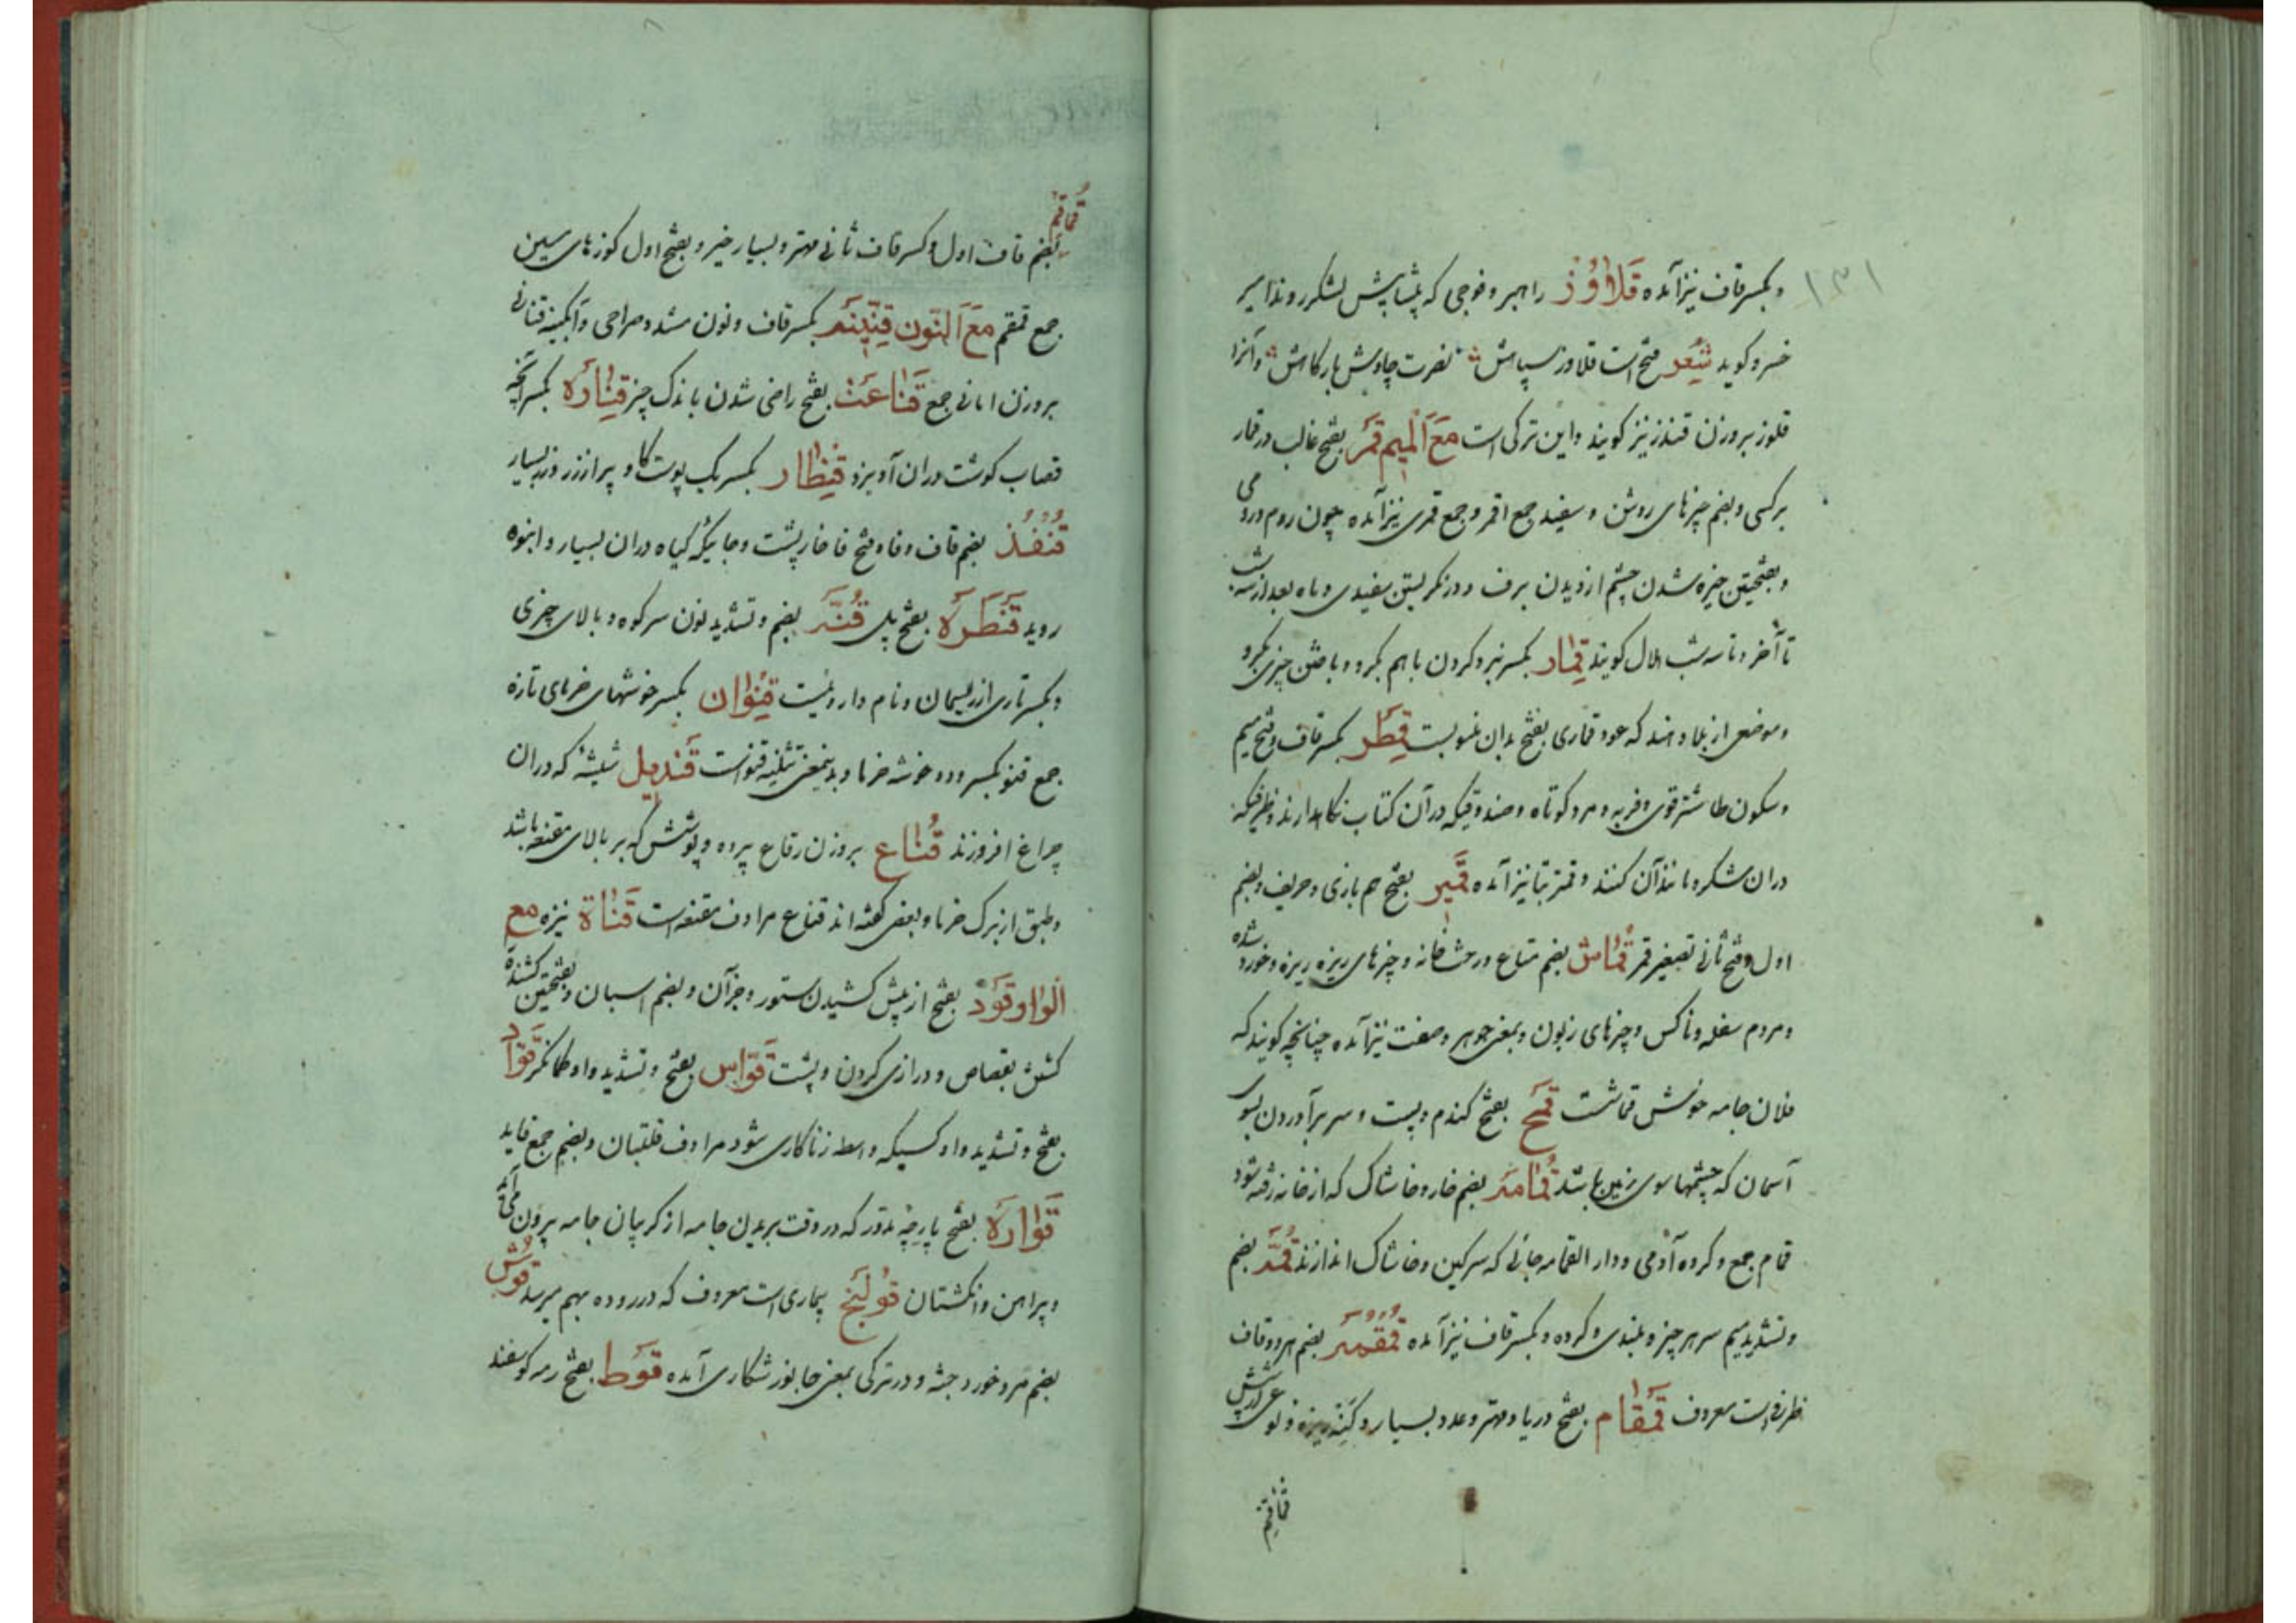 ۱۳۱
و بکسر قاف نیز آمده قَلاوُوز راهبر و فوجی که پیشاپیش لشکر روند امیر
خسرو گوید شعر فتح است قلاوز سپاهش نصرت چاوش بارگاهش و آنرا
قلوز بر وزن قندز نیز گویند و این ترکی است مَعَ الْمِیم قَمَر بفتح غالب در قمار
بر کسی و بضم چیزهای روشن و سفید جمع اقمر و جمع قمری نیز آمده چون روم و رومی
و بفتحتین خیره شدن چشم از دیدن برف و در نگریستن سفیدی و ماه بعد از سه شب
تا آخر و تا سه شب هلال گویند قِمار بکسر نبرد کردن با هم بگرو و باختن چیزی بگرو
و موضعی از بلاد هند که عود قماری بفتح بدان منسوبست قِمَطْر بکسر قاف و فتح میم
و سکون طا شتر قوی و فربه و مرد کوتاه و صندوقیکه در آن کتاب نگاهدارند و ظرفیکه
دران شکر و مانند آن کنند و قمتر بتا نیز آمده قَمیر بفتح هم بازی و حریف و بضم
اول و فتح ثانی تصغیر قمر قُماش بضم متاع و رخت خانه و چیزهای ریزه ریزه و خورد شده
و مردم سفله و ناکس و چیزهای زبون و بمعنی جوهر و صفت نیز آمده چنانچه گویند که
فلان جامه خوش قماشت قَمْح بفتح گندم و پست و سر برآوردن بسوی
آسمان که چشمها سوی زمین باشد قُمامَه بضم خار و خاشاک که از خانه رفته شود
قمام جمع و گروه آدمی و دار القمامه جائی که سرگین و خاشاک اندازند قُمَّه بضم
و تشدید میم سر هر چیز و بلندی و گروه و بکسر قاف نیز آمده قُمْقُمَه بضم هر دو قاف
ظرفی است معروف قَمْقام بفتح دریا و مهتر و عدد بسیار و کنه ریزه و نوعی از شپش
قماقم
قُماقِم
بضم قاف اول و کسر قاف ثانی مهتر و بسیار خیر و بفتح اول کوزهای سین
جمع قمقم مَعَ النّون قِنّینَه بکسر قاف و نون مشدد صراحی و آبگینه قنانی
بر وزن امانی جمع قَناعَت بفتح راضی شدن باندک چیز قِنّارَه بکسر آنچه
قصاب گوشت دران آویزد قِنْطار بکسر یک پوست گاو پر از زر و زر بسیار
قُنْفُذ بضم قاف و فا و فتح فا خارپشت و جائیکه گیاه دران بسیار و انبوه
روید قَنْطَرَه بفتح پل قُنَّه بضم و تشدید نون سر کوه و بالای چیزی
و بکسر تاری از ریسمان و نام داروئیست قِنْوان بکسر خوشهای خرمای تازه
جمع قنو بکسر و دو خوشه خرما و بدینمعنی تثنیه قنو است قَندیل شیشه که دران
چراغ افروزند قُناع بر وزن رقاع پرده و پوشش که بر بالای مقنعه باشد
و طبق از برگ خرما و بعضی گفته اند قناع مرادف مقنعه است قَناة نیزه مع
الْواو قَوْد بفتح از پیش کشیدن ستور و جز آن و بضم اسبان و بفتحتین کشنده
کشتن بقصاص و درازی گردن و پشت قَوّاس بفتح و تشدید واو کمانگر قَوّاد
بفتح و تشدید واو کسیکه واسطه زناکاری شود مرادف قلتبان و بضم جمع قاید
قَوارَه بفتح پارچه مدور که در وقت بریدن جامه از گریبان جامه بیرون می آید
و پیراهن و انگشتان قُولَنْج بیماری است معروف که در روده بهم میرسد قُوش
بضم مرد خورد جثه و در ترکی بمعنی جانور شکاری آمده قَوْط بفتح رمه گوسفند